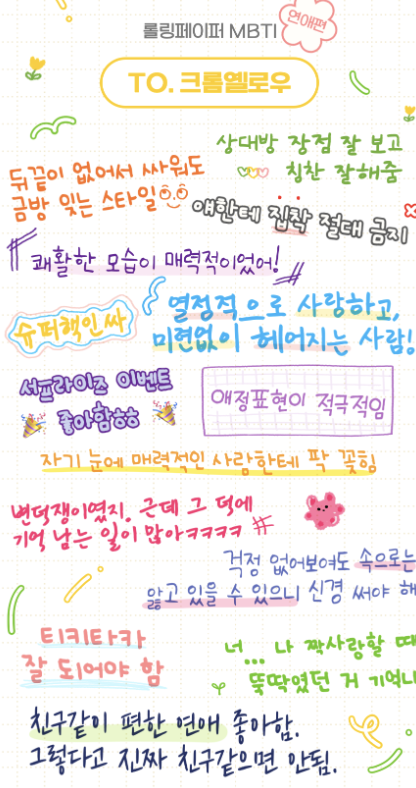 롤링페이퍼 MBTI
연애편
TO. 크롬옐로우
상대방 장점 잘 보고
칭찬 잘해줌
뒤끝이 없어서 싸워도
금방 잊는 스타일
얘한테 집착 절대 금지
쾌활한 모습이 매력적이었어!
열정적으로 사랑하고,
미련없이 헤어지는 사람!
슈퍼핵인싸
서프라이즈 이벤트
좋아함ㅎㅎ
애정표현이 적극적임
자기 눈에 매력적인 사람한테 팍 꽂힘
변덕쟁이였지. 근데 그 덕에
기억 남는 일이 많아ㅋㅋㅋㅋ
걱정 없어보여도 속으로는
앓고 있을 수 있으니 신경 써야 해
티키타카
잘 되어야 함
너... 나 짝사랑할 때
뚝딱였던 거 기억나
친구같이 편한 연애 좋아함.
그렇다고 진짜 친구같으면 안됨.